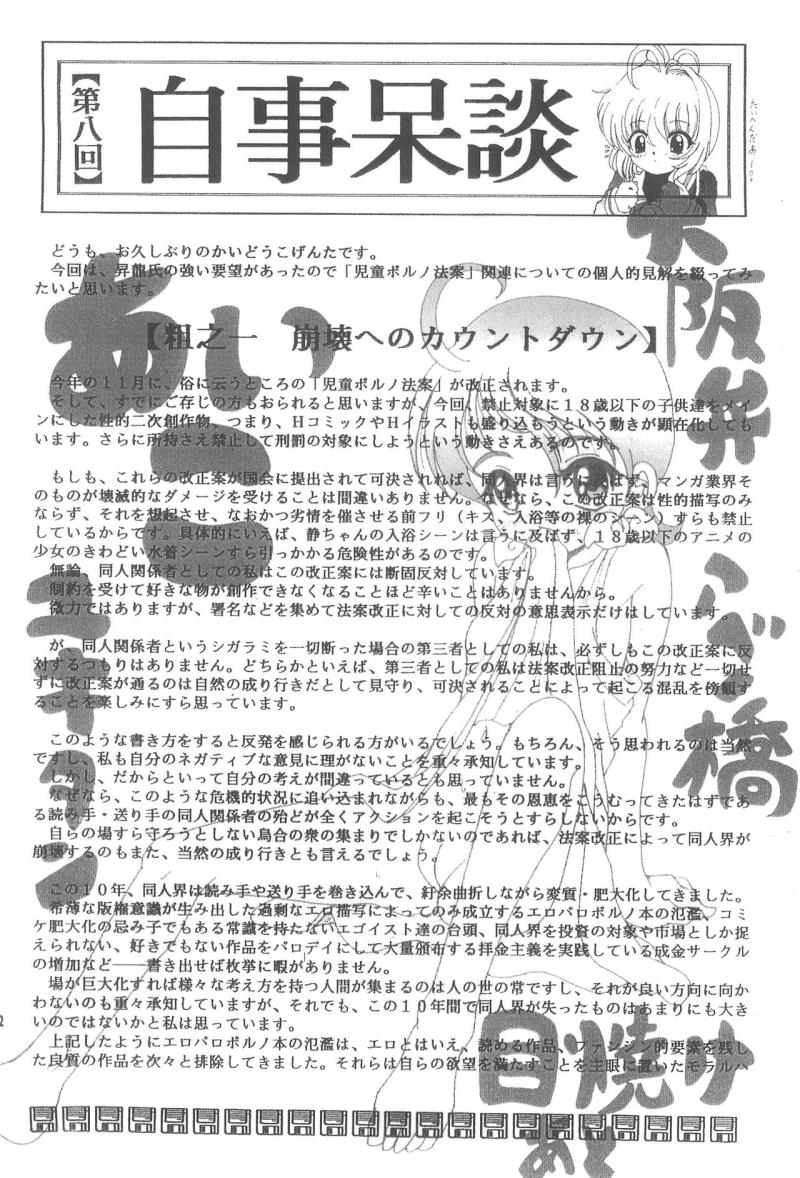 【第八回】
自事呆談
たいへんだあ
どうも、お久しぶりのかいどうこげんたです。
今回は、昇龍氏の強い要望があったので「児童ポルノ法案」関連についての個人的見解を綴ってみ
たいと思います。
【粗之一　崩壊へのカウントダウン】
今年の１１月に、俗に云うところの「児童ポルノ法案」が改正されます。
そして、すでにご存じの方もおられると思いますが、今回、禁止対象に１８歳以下の子供達をメイ
ンにした性的二次創作物、つまり、ＨコミックやＨイラストも盛り込もうという動きが顕在化しても
います。さらに所持さえ禁止して刑罰の対象にしようという動きさえあるのです。
もしも、これらの改正案が国会に提出されて可決されれば、同人界は言うに及ばず、マンガ業界そ
のものが壊滅的なダメージを受けることは間違いありません。なぜなら、この改正案は性的描写のみ
ならず、それを想起させ、なおかつ劣情を催させる前フリ（キス、入浴等の裸のシーン）すらも禁止
しているからです。具体的にいえば、静ちゃんの入浴シーンは言うに及ばず、１８歳以下のアニメの
少女のきわどい水着シーンすら引っかかる危険性があるのです。
無論、同人関係者としての私はこの改正案には断固反対しています。
制約を受けて好きな物が創作できなくなることほど辛いことはありませんから。
微力ではありますが、署名などを集めて法案改正に対しての反対の意思表示だけはしています。
が、同人関係者というシガラミを一切断った場合の第三者としての私は、必ずしもこの改正案に反
対するつもりはありません。どちらかといえば、第三者としての私は法案改正阻止の努力など一切せ
ずに改正案が通るのは自然の成り行きだとして見守り、可決されることによって起こる混乱を傍観す
ることを楽しみにすら思っています。
このような書き方をすると反発を感じられる方がいるでしょう。もちろん、そう思われるのは当然
ですし、私も自分のネガティブな意見に理がないことを重々承知しています。
しかし、だからといって自分の考えが間違っているとも思っていません。
なぜなら、このような危機的状況に追い込まれながらも、最もその恩恵をこうむってきたはずであ
る読み手・送り手の同人関係者の殆どが全くアクションを起こそうとすらしないからです。
自らの場すら守ろうとしない烏合の衆の集まりでしかないのであれば、法案改正によって同人界が
崩壊するのもまた、当然の成り行きとも言えるでしょう。
この１０年、同人界は読み手や送り手を巻き込んで、紆余曲折しながら変質・肥大化してきました。
希薄な版権意識が生み出した過剰なエロ描写によってのみ成立するエロパロポルノ本の氾濫、コミ
ケ肥大化の忌み子でもある常識を持たないエゴイスト達の台頭、同人界を投資の対象や市場としか捉
えられない、好きでもない作品をパロディにして大量頒布する拝金主義を実践している成金サークル
の増加など――書き出せば枚挙に暇がありません。
場が巨大化すれば様々な考え方を持つ人間が集まるのは人の世の常ですし、それが良い方向に向か
わないのも重々承知していますが、それでも、この１０年間で同人界が失ったものはあまりにも大き
いのではないかと私は思っています。
上記したようにエロパロポルノ本の氾濫は、エロとはいえ、読める作品、ファンジン的要素を残し
た良質の作品を次々と排除してきました。それらは自らの欲望を満たすことを主眼に置いたモラルハ
大阪弁
橋
日焼け
あと
2